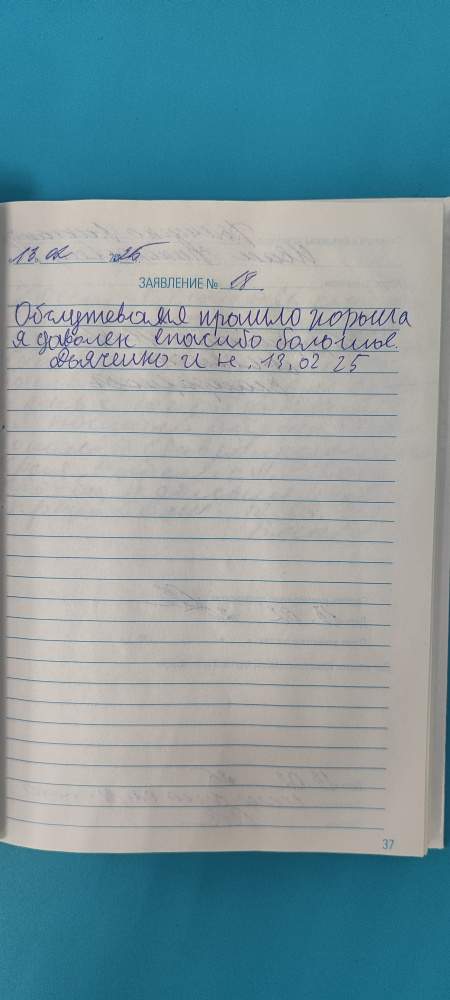 13.02 25
ЗАЯВЛЕНИЕ № 18
Обслужеваня прошло хорыша
я даволен спасибо большые.
Дьяченко И Н. 13.02 25
37